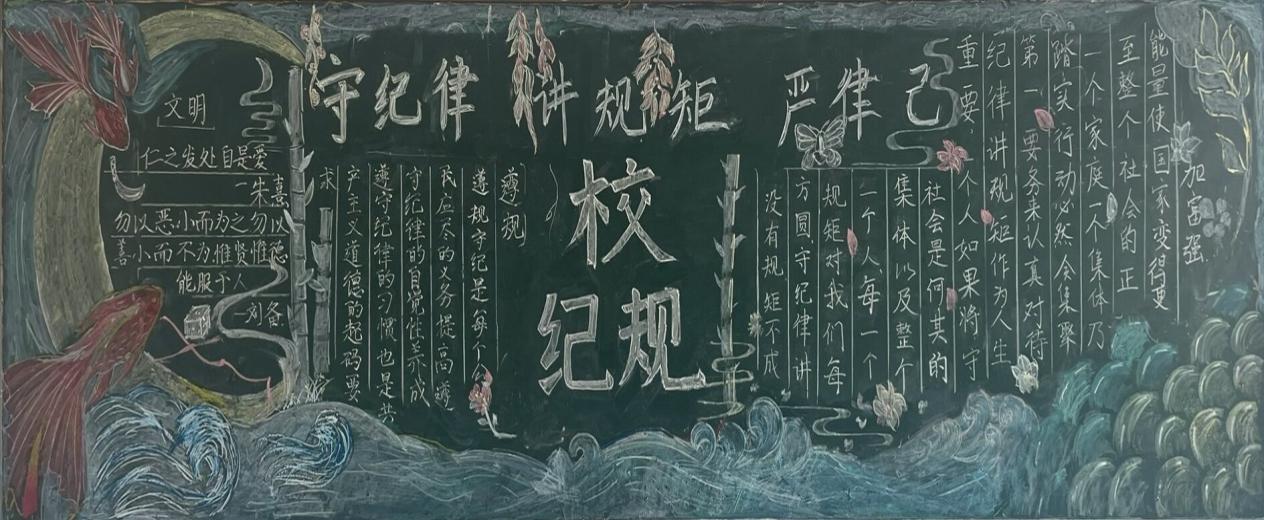 守纪律 讲规矩 严律己
文明
仁之发处自是爱
一朱熹
勿以恶小而为之勿以
善小而不为惟贤惟德
能服于人
一刘备
遵规
遵规守纪是每个公
民应尽的义务提高遵
守纪律的自觉性养成
遵守纪律的习惯也是共
产主义道德的起码要
求
校
纪规
没有规矩不成
方圆守纪律讲
规矩对我们每
一个人,每一个
集体以及整个
社会是何其的
重要,个人如果将守
纪律讲规矩作为人生
第一要务来认真对待
踏实行动必然会集聚
一个家庭一个集体乃
至整个社会的正
能量使国家变得更
加富强